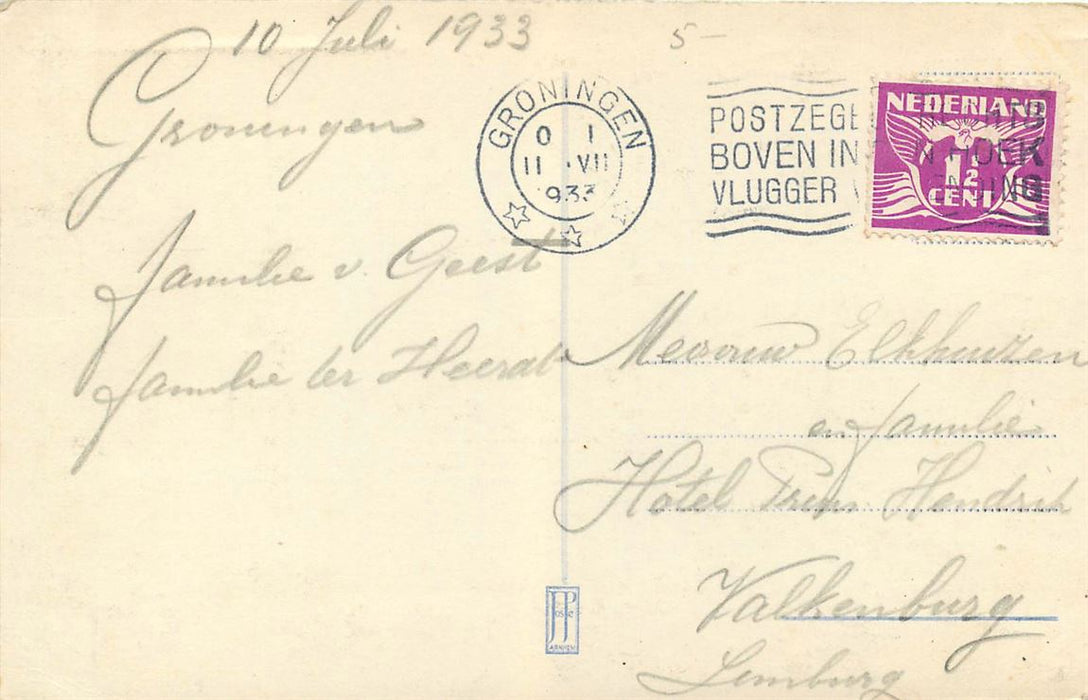 10 Juli 1933
5-
Groningen
Familie v. Geest
Familie ter
GRONINGEN
0 1
11 VII
933
POSTZEGE
BOVEN IN HOEK
VLUGGER
NEDERLAND
1½
CENT
Mevrouw Elkhuizen
en familie
Hotel Prins Hendrik
Valkenburg
Limburg
JP
ARNHEM